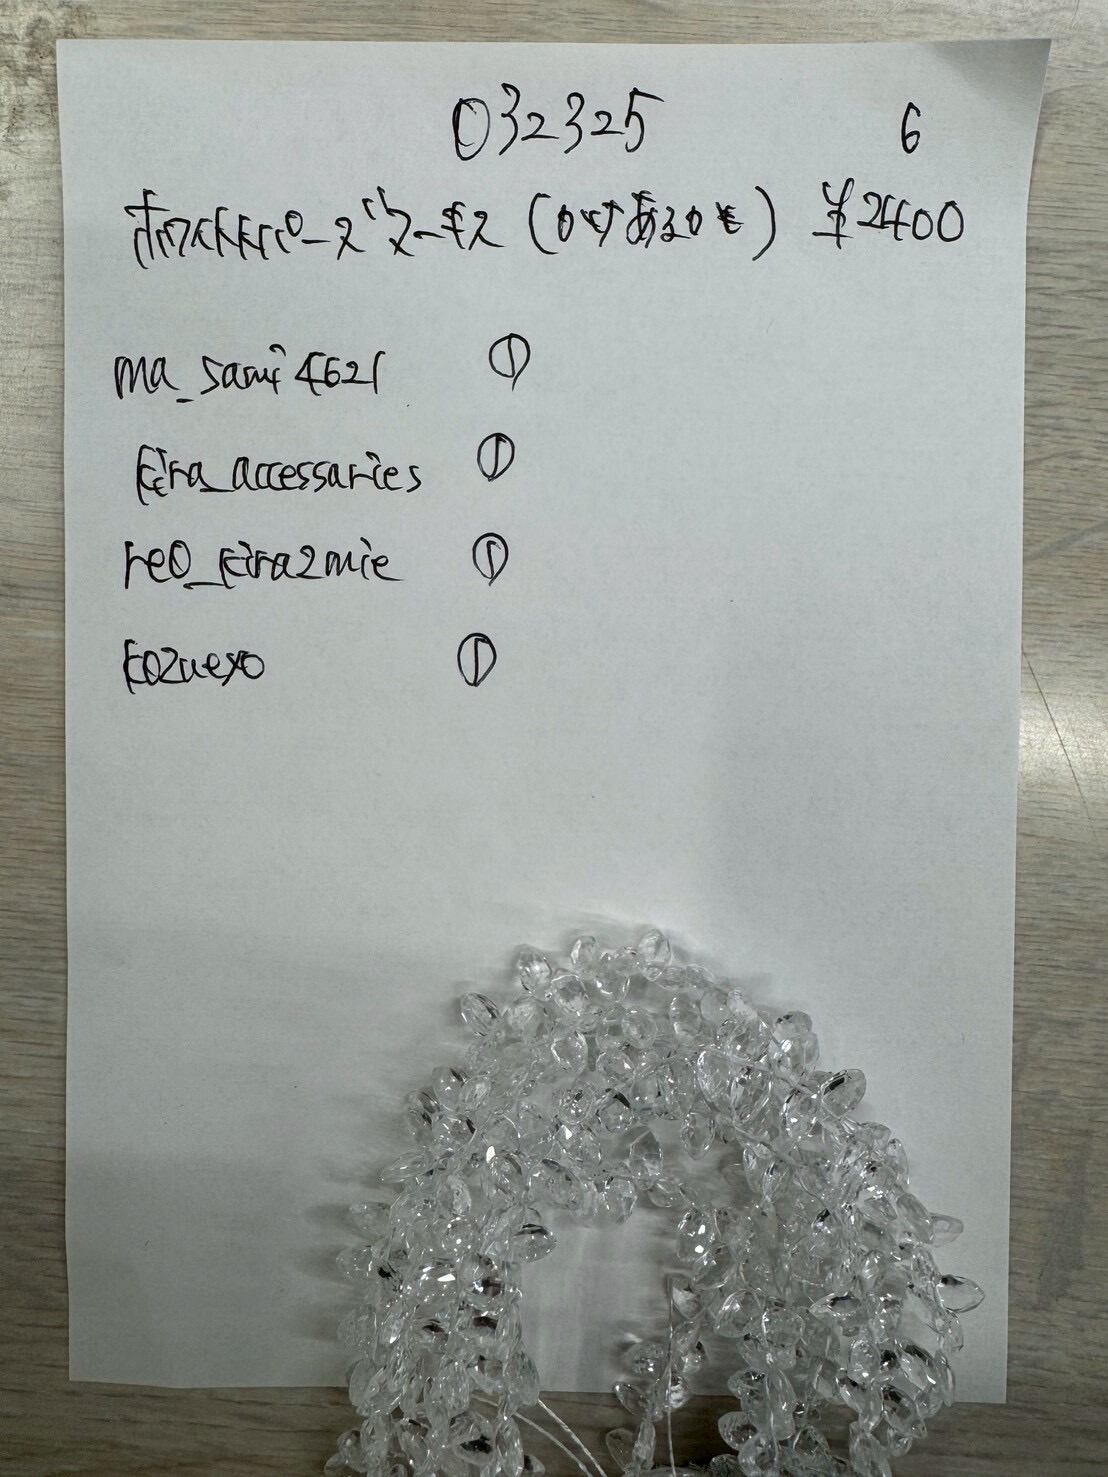 032325 6
ホワイトトパーズ マーキス (のすあるのも) ¥2400
ma_sami4621 ①
kira_accessaries ①
reo_kira2mie ①
kozuexo ①